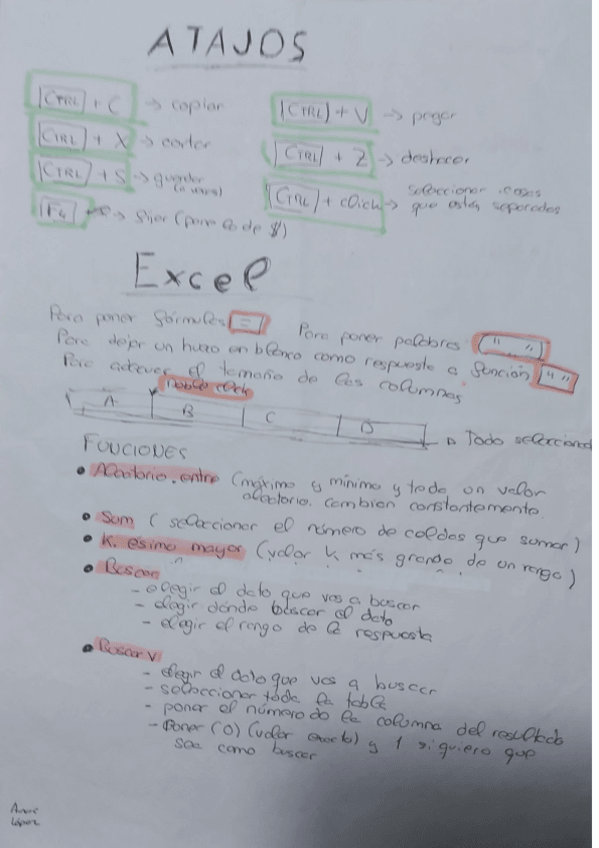 ATAJOS
CTRL + C → copiar
CTRL + V → pegar
CTRL + X → cortar
CTRL + Z → deshacer
CTRL + S → guardar
CTRL + click → seleccionar cosas
que están separadas
F4 → fijar (pone lo de $)
Excel
Para poner fórmulas =
Para poner palabras (" ")
Para dejar un hueco en blanco como respuesta a función " "
Para adecuar el tamaño de las columnas
doble click
A B C D → Todo seleccionado
FUNCIONES
• Aleatorio.entre (máximo y mínimo y te da un valor
aleatorio. cambian constantemente.
• Sum (seleccionar el número de celdas que sumar)
• K. ésimo mayor (valor k más grande de un rango)
• Buscar
- elegir el dato que vas a buscar
- elegir dónde buscar el dato
- elegir el rango de la respuesta
• Buscar v
- elegir el dato que vas a buscar
- seleccionar toda la tabla
- poner el número de la columna del resultado
- Poner (0) (valor exacto) y 1 si quiero que
sea como buscar
López